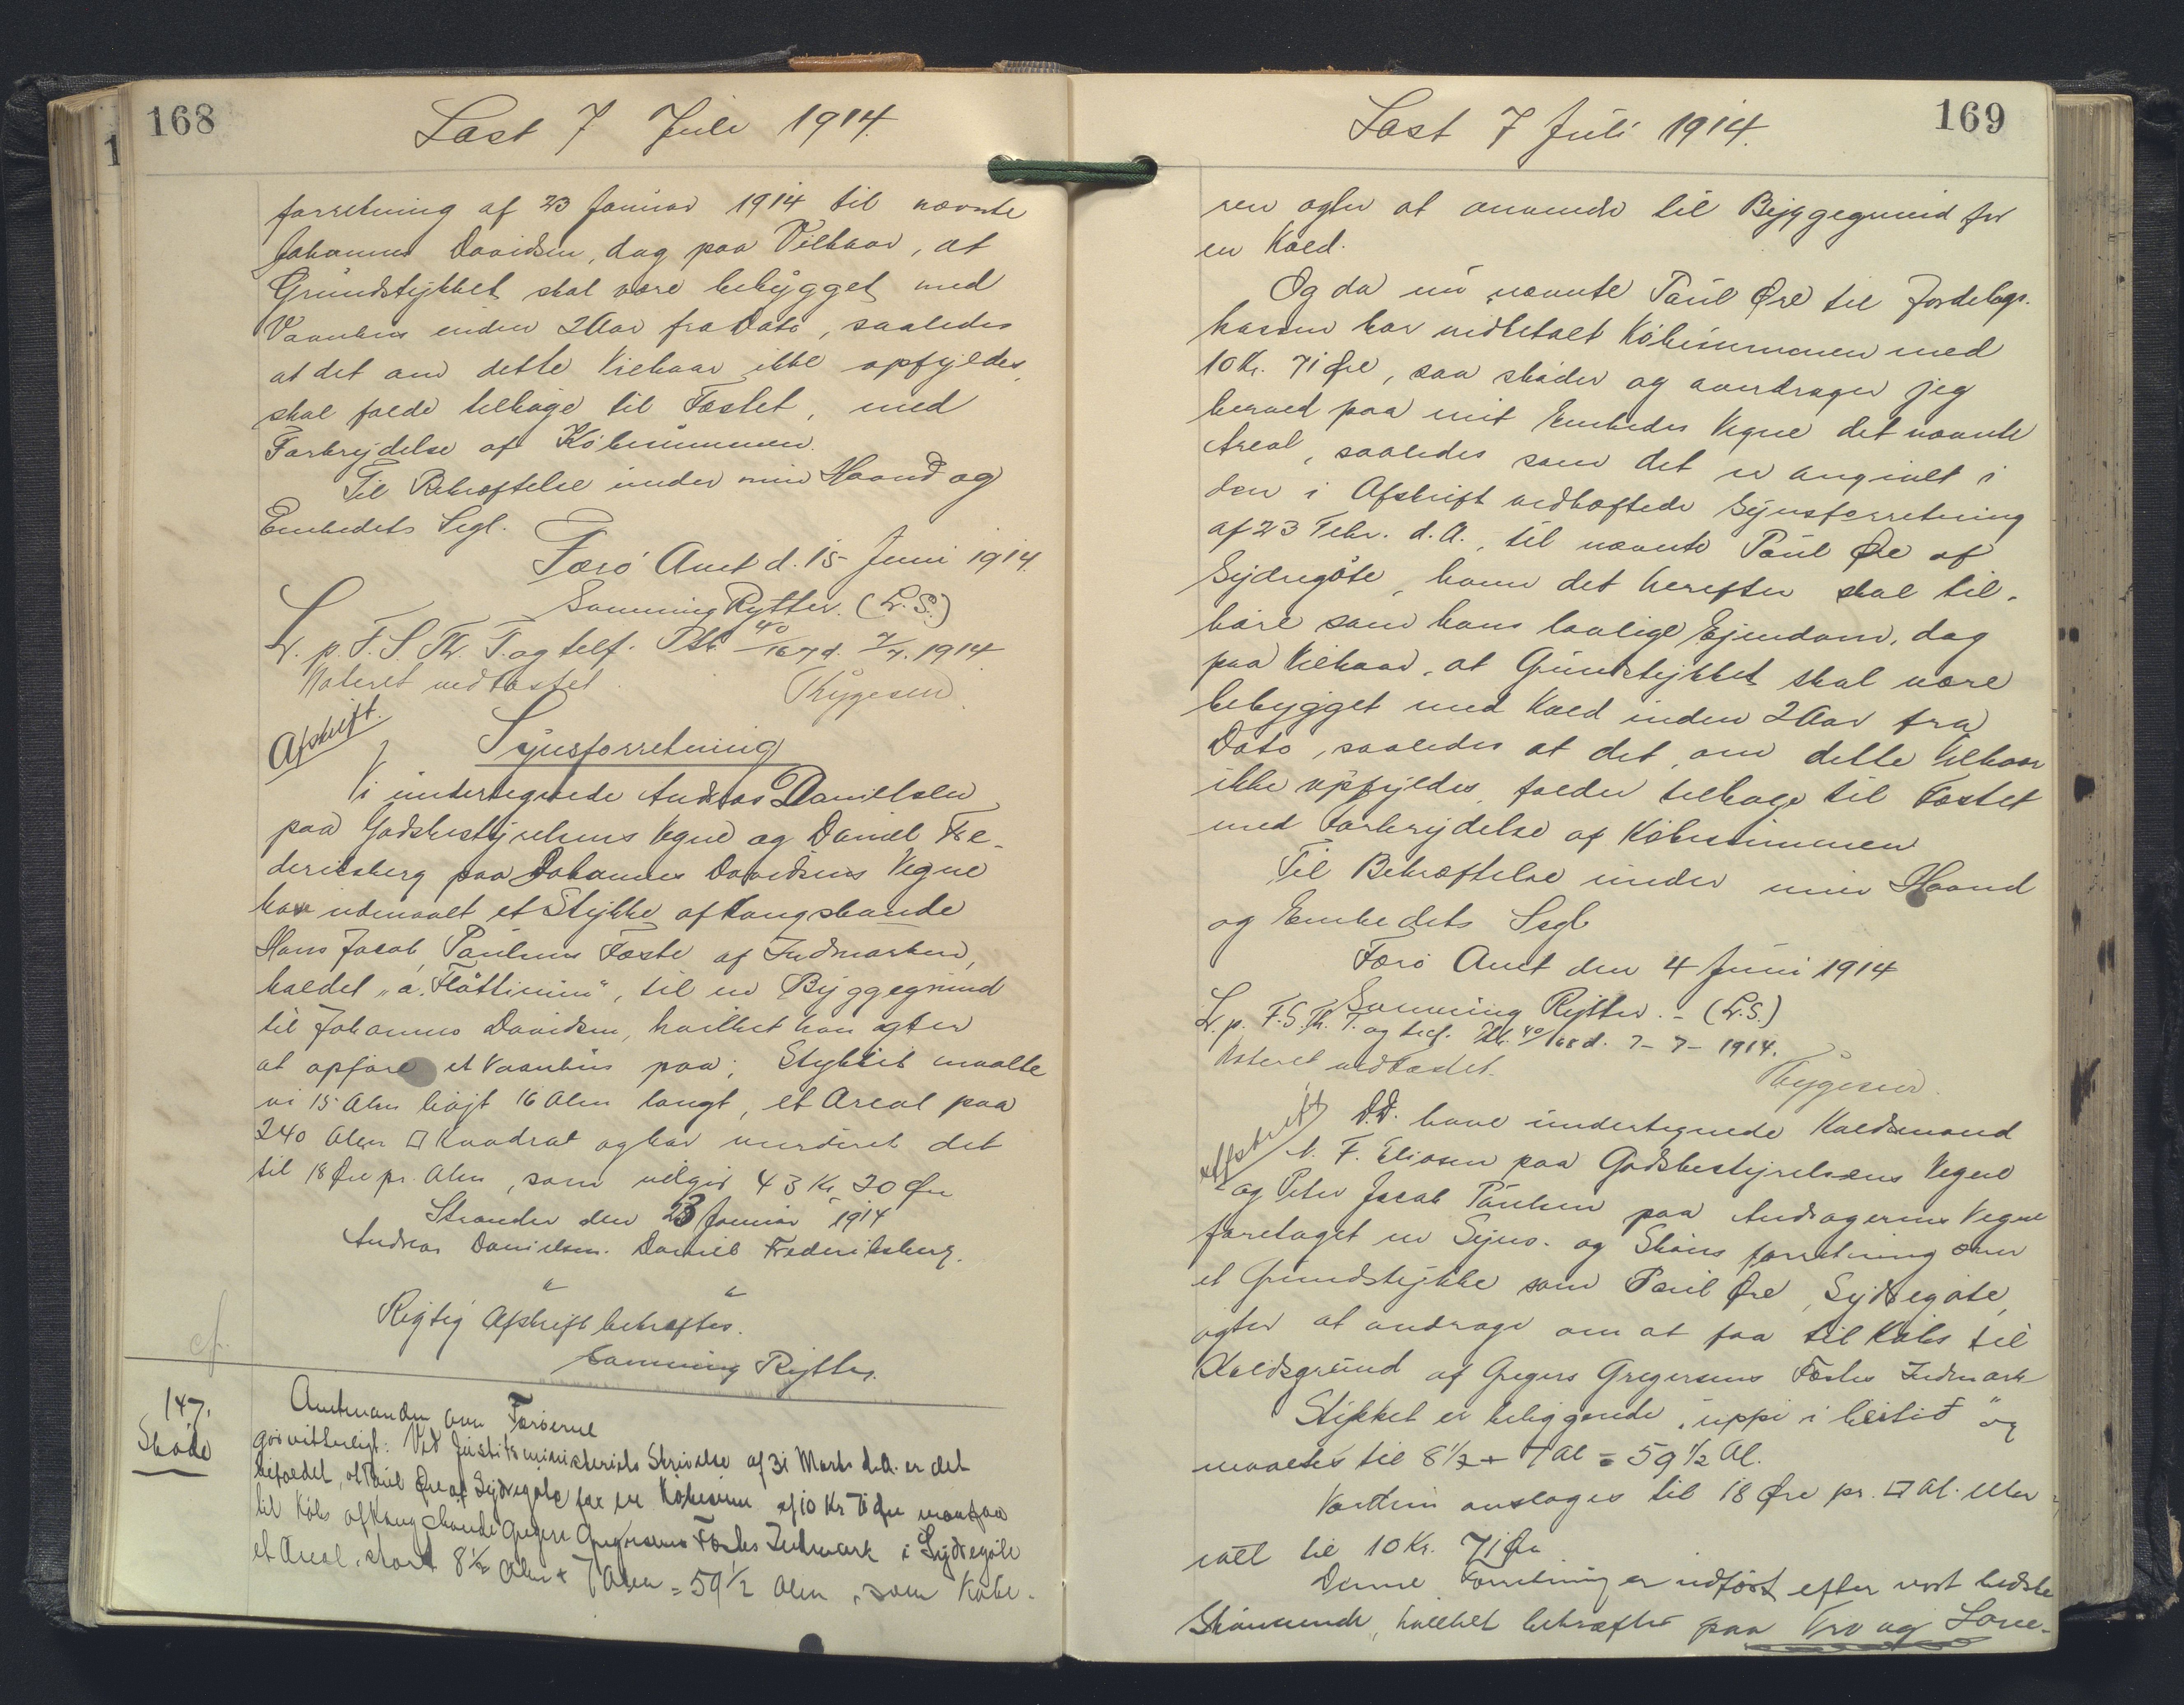 168
Læst 7 Juli 1914.
forretning af 23 Januar 1914 til nævnte
Johannes Davidsen, dog paa Vilkaar, at
Grundstykket skal være bebygget med
Vaanhus inden 2 Aar fra Dato, saaledes
at det om dette Vilkaar ikke opfyldes,
skal falde tilbage til Fæstet, med
Forbrydelse af Købesummen.
Til Bekræftelse under min Haand og
Embedets Segl.
Færø Amt d. 15 Juni 1914.
Svenning Rytter. (L.S.)
L. p. F. S. Th. T. og telf. Ptk. 40/167 d. 7/7. 1914
Noteret ved Fæstet. Thygesen
Afskrift.
Synsforretning
Vi undertegnede Andreas Danielsen
paa Godsbestyrelsens Vegne og Daniel Fre-
deriksberg paa Johannes Davidsens Vegne
have udmaalt et Stykke af Kongsbonde
Hans Jacob Paulsens Fæste af Indmarken,
kaldet „á Fløttinum", til en Byggegrund
til Johannes Davidsen, hvilket han agter
at opføre et Vaanhus paa; Stykket maalte
vi 15 Alen højt 16 Alen langt, et Areal paa
240 Alen □ Kvadrat og har vurderet det
til 18 Øre pr. Alen, som udgør 43 Kr. 20 Øre
Strænder den 23 Januar 1914
Andreas Danielsen. Daniel Frederiksberg.
" "
Rigtig Afskrift bekræftes.
Svenning Rytter.
cf.
147.
Skøde
Amtmanden over Færøerne
gør vitterligt: Ved Justitsministeriets Skrivelse af 31 Marts d.A. er det
bifaldet, at Paul Øre af Sydregøte for en Købesum af 10 Kr 71 Øre maa faa
til Købs af Kongsbonde Gregers Gregersens Fæstes Indmark i Sydregøte
et Areal, stort 8½ Alen + 7 Alen = 59½ Alen, som Købe-
169
Læst 7 Juli 1914.
ren agter at anvende til Byggegrund for
en Kald.
Og da nu nævnte Paul Øre til Jordebogs-
kassen har indbetalt Købesummen med
10 Kr. 71 Øre, saa skøder og overdrager jeg
herved paa mit Embedes Vegne det nævnte
Areal, saaledes som det er angivet i
den i Afskrift vedhæftede Synsforretning
af 23 Febr. d. A., til nævnte Paul Øre af
Sydregøte, ham det herefter skal til-
høre som hans lovlige Ejendom, dog
paa Vilkaar, at Grundstykket skal være
bebygget med Kald inden 2 Aar fra
Dato, saaledes at det, om dette Vilkaar
ikke opfyldes, falder tilbage til Fæstet
med Forbrydelse af Købesummen
Til Bekræftelse under min Haand
og Embedets Segl
Færø Amt den 4 Juni 1914
Svenning Rytter. - (L.S.)
L. p. F. S. Th. T. og telf. Ptk. 40/168 d. 7-7- 1914.
Noteret ved Fæstet. Thygesen.
Afskrift
D.D. have undertegnede Kaldsmand
N. F. Eliasen paa Godsbestyrelsens Vegne
og Peter Jacob Paulsen paa Andragerens Vegne
foretaget en Syns- og Skønsforretning over
et Grundstykke som Paul Øre, Sydregøte,
agter at andrage om at faa til Købs til
Kaldsgrund af Gregers Gregersens Fæstes Indmark
Stykket er beliggende „uppi i Geilið" og
maaltes til 8½ + 7 Al = 59½ Al.
Værdien ansloges til 18 Øre pr. □ Al. eller
ialt til 10 Kr. 71 Øre
Denne Forretning er udført efter vort bedste
Skønnende, hvilket bekræftes paa Tro og Love-